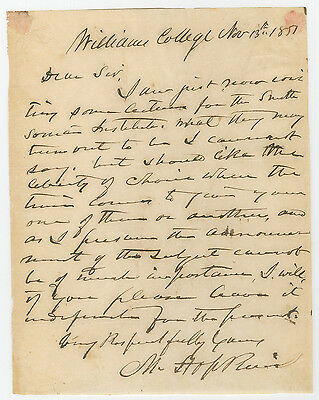 Williams College Nov 13th. 1851
Dear Sir,
I am just now wri
ting some lectures for the Smith
sonian Institute. What they may
turn out to be I cannot
say. but should like the
liberty of choice when the
time comes to give you
one of them or another, and
as I presume the announce
ment of the subject cannot
be of much importance, I will
if you please leave it
indefinite for the present
Very Respectfully Yours
M. Hopkins